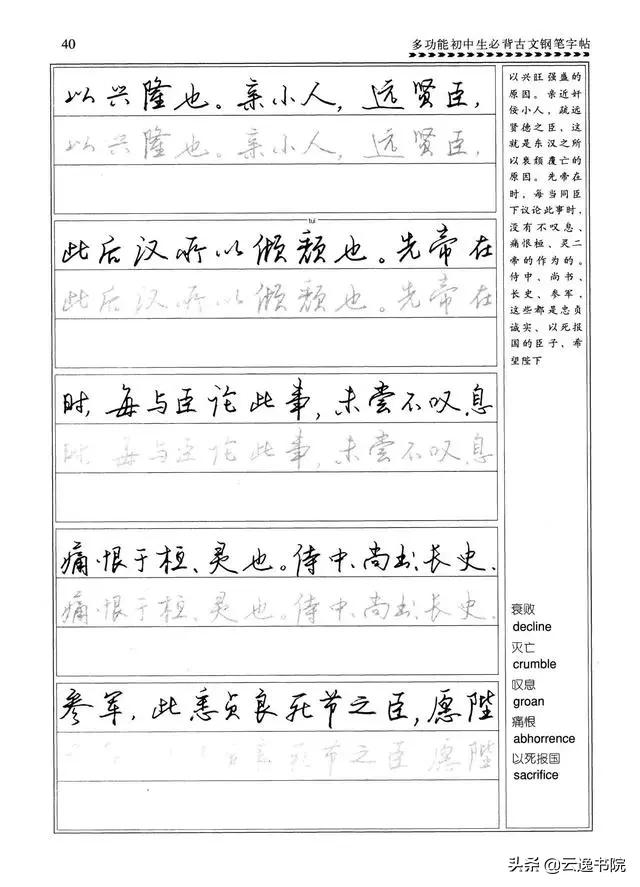 40
多功能初中生必背古文钢笔字帖
以兴隆也。亲小人，远贤臣，
以兴隆也。亲小人，远贤臣，
tuí
此后汉所以倾颓也。先帝在
此后汉所以倾颓也。先帝在
时，每与臣论此事，未尝不叹息
时，每与臣论此事，未尝不叹息
痛恨于桓、灵也。侍中、尚书、长史、
痛恨于桓、灵也。侍中、尚书、长史、
参军，此悉贞良死节之臣，愿陛
良死节之臣 愿陛
以兴旺强盛的
原因。亲近奸
佞小人，疏远
贤德之臣，这
就是东汉之所
以衰颓覆亡的
原因。先帝在
时，每当同臣
下议论此事时，
没有不叹息、
痛恨桓、灵二
帝的作为的。
侍中、尚书、
长史、参军，
这些都是忠贞
诚实、以死报
国的臣子，希
望陛下
衰败
decline
灭亡
crumble
叹息
groan
痛恨
abhorrence
以死报国
sacrifice
头条@云逸书院